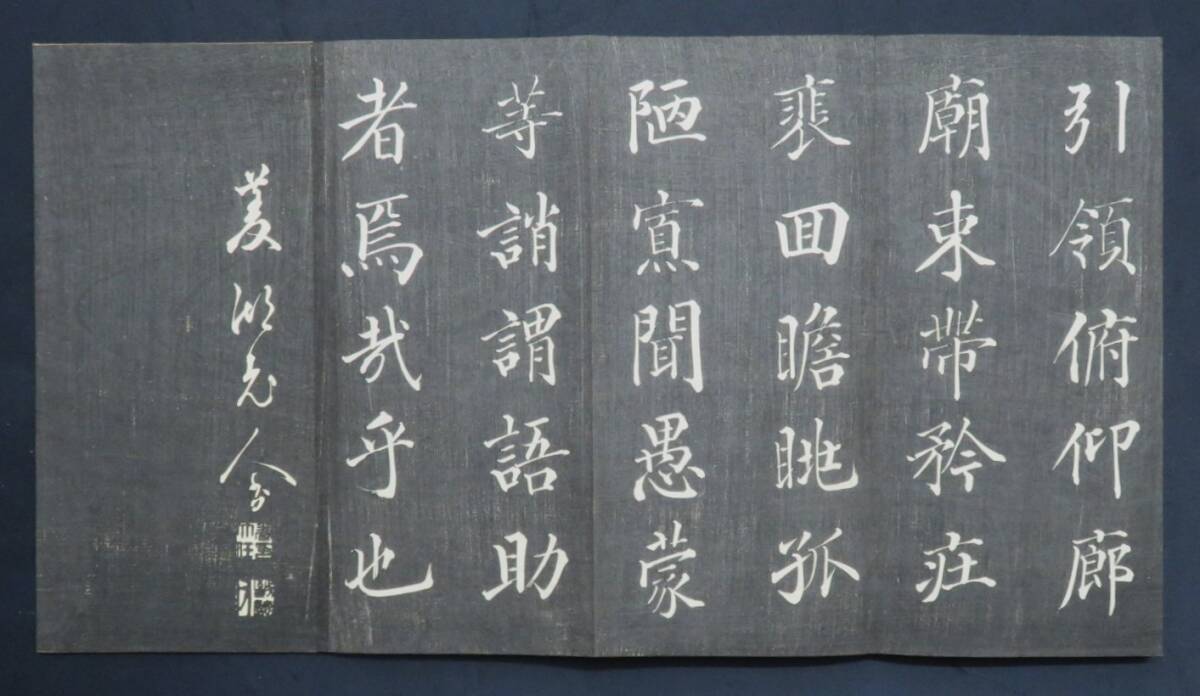 引領俯仰廊
廟束帶矜莊
裵回瞻眺孤
陋寡聞愚蒙
等誚謂語助
者焉哉乎也
菱湖老人書